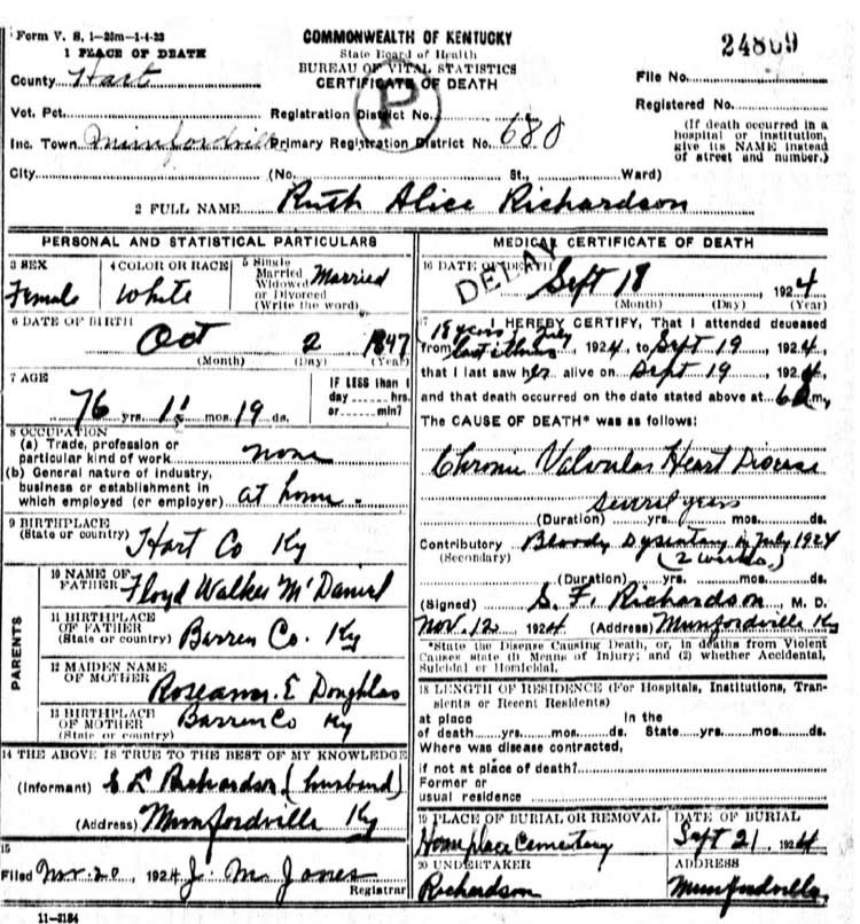 Form V. S. 1-20m-1-4-22
COMMONWEALTH OF KENTUCKY
State Board of Health
BUREAU OF VITAL STATISTICS
CERTIFICATE OF DEATH
24809
1 PLACE OF DEATH
County Hart
File No.
Vot. Pct.
Registration District No.
P
Registered No.
(If death occurred in a
hospital or institution,
give its NAME instead
of street and number.)
Inc. Town Munfordville Primary Registration District No. 680
City (No. St., Ward)
2 FULL NAME Ruth Alice Richardson
PERSONAL AND STATISTICAL PARTICULARS
3 SEX
Female
4 COLOR OR RACE
White
5 Single
Married
Widowed
or Divorced
(Write the word)
Married
6 DATE OF BIRTH
Oct 2 1847
(Month) (Day) (Year)
7 AGE
76 yrs. 11 mos. 19 ds.
IF LESS than 1
day hrs.
or min?
8 OCCUPATION
(a) Trade, profession or
particular kind of work none
(b) General nature of industry,
business or establishment in
which employed (or employer) at home
9 BIRTHPLACE
(State or country) Hart Co Ky
PARENTS
10 NAME OF
FATHER Floyd Walker McDaniel
11 BIRTHPLACE
OF FATHER
(State or country) Barren Co. Ky
12 MAIDEN NAME
OF MOTHER E Doughlas
13 BIRTHPLACE
OF MOTHER
(State or country) Barren Co Ky
14 THE ABOVE IS TRUE TO THE BEST OF MY KNOWLEDGE
(Informant) Richardson (husband)
(Address) Munfordville Ky
15
Filed Nov. 20, 1924 J. M. Jones
Registrar
11-3184
MEDICAL CERTIFICATE OF DEATH
16 DATE OF DEATH
DELAY
Sept 18 1924
(Month) (Day) (Year)
17 I HEREBY CERTIFY, That I attended deceased
18 years July
from last illness, 1924, to Sept 19, 1924,
that I last saw her alive on Sept 19, 1924,
and that death occurred on the date stated above at 6 m.
The CAUSE OF DEATH* was as follows:
Chronic Valvular Heart Disease
several years
(Duration) yrs. mos. ds.
Contributory Bloody Dysentary in July 1924
(Secondary) (2 weeks.)
(Duration) yrs. mos. ds.
(Signed) S. F. Richardson, M. D.
Nov. 12 1924 (Address) Munfordville Ky
*State the Disease Causing Death, or, in deaths from Violent
Causes state (1) Means of Injury; and (2) whether Accidental,
Suicidal or Homicidal.
18 LENGTH OF RESIDENCE (For Hospitals, Institutions, Tran-
sients or Recent Residents)
at place In the
of death yrs. mos. ds. State yrs. mos. ds.
Where was disease contracted,
if not at place of death?
Former or
usual residence
19 PLACE OF BURIAL OR REMOVAL
Homeplace Cemetery
DATE OF BURIAL
Sept 21, 1924
20 UNDERTAKER
Richardson
ADDRESS
Munfordville